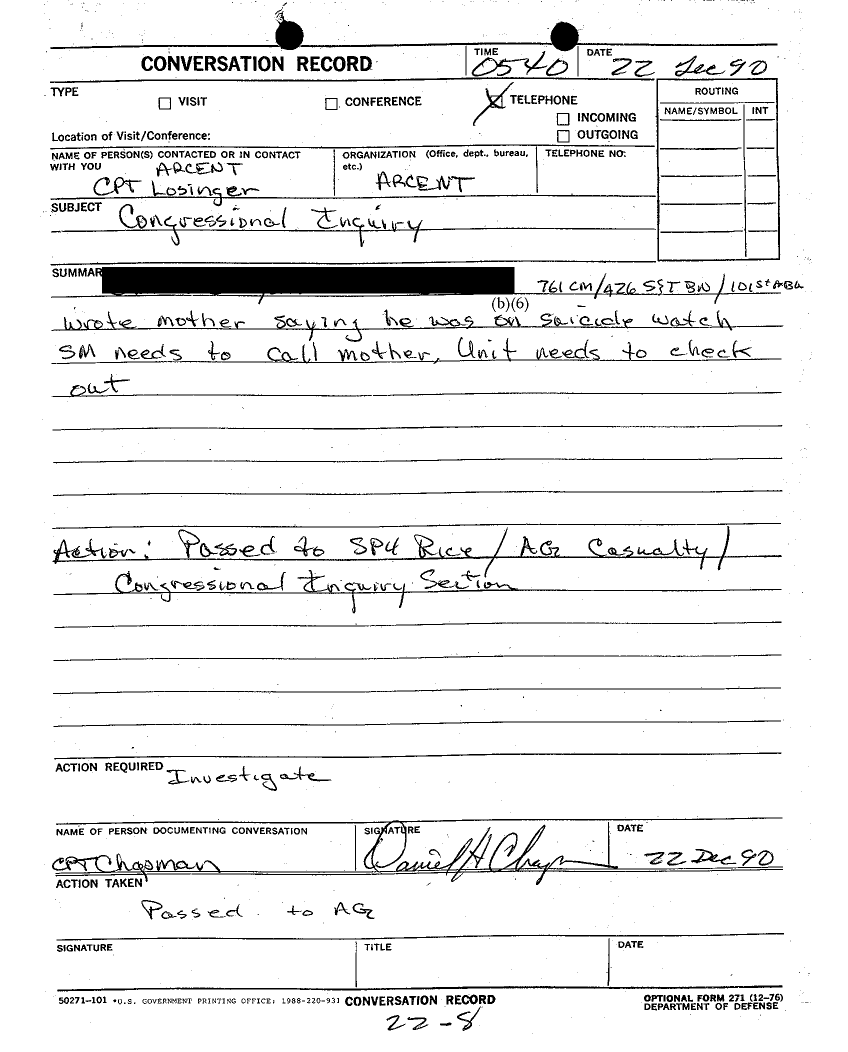 CONVERSATION RECORD
TIME
0540
DATE
22 Dec 90
TYPE
VISIT
CONFERENCE
TELEPHONE
INCOMING
OUTGOING
Location of Visit/Conference:
ROUTING
NAME/SYMBOL INT
NAME OF PERSON(S) CONTACTED OR IN CONTACT
WITH YOU ARCENT
CPT Losinger
ORGANIZATION (Office, dept., bureau,
etc.)
ARCENT
TELEPHONE NO:
SUBJECT Congressional Inquiry
SUMMAR
761 CM/426 S&T BN/101st ABN
(b)(6)
wrote mother saying he was on suicide watch
SM needs to call mother, Unit needs to check
out
Action: Passed to SP4 Rice / AG Casualty /
Congressional Inquiry Section
ACTION REQUIRED Investigate
NAME OF PERSON DOCUMENTING CONVERSATION
CPT Chapman
SIGNATURE
Daniel H Chapman
DATE
22 Dec 90
ACTION TAKEN
Passed to AG
SIGNATURE
TITLE
DATE
50271-101 *U.S. GOVERNMENT PRINTING OFFICE: 1988-220-931 CONVERSATION RECORD
OPTIONAL FORM 271 (12-76)
DEPARTMENT OF DEFENSE
22-8